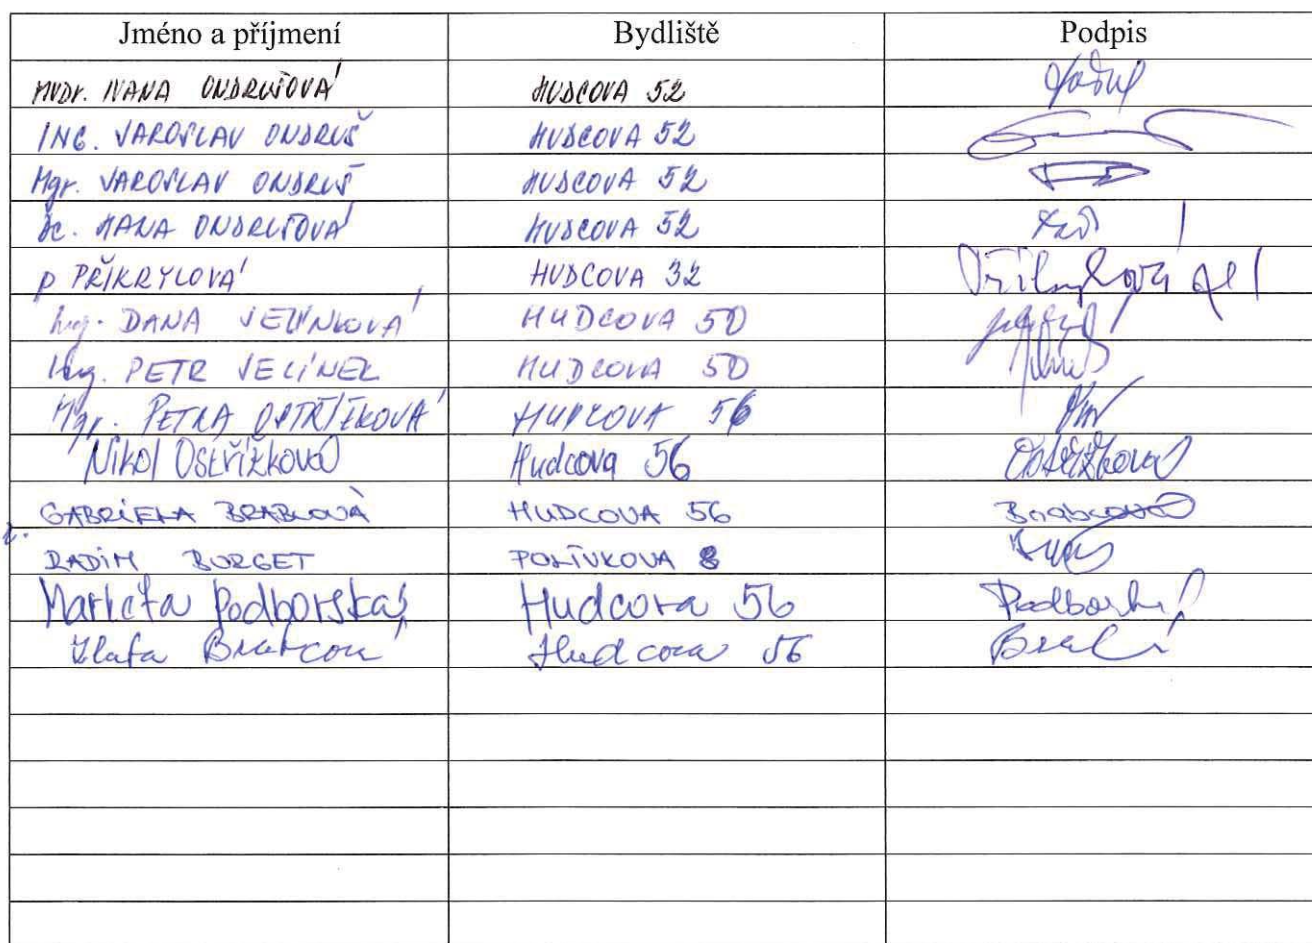 Jméno a příjmení Bydliště Podpis
MUDr. IVANA ONDRUŠOVÁ HUDCOVA 52
ING. JAROSLAV ONDRUŠ HUDCOVA 52
Mgr. JAROSLAV ONDRUŠ HUDCOVA 52
HANA ONDRUŠOVÁ HUDCOVA 52
p PŘIKRYLOVÁ HUDCOVA 32 Přikrylová
Ing. DANA JELÍNKOVÁ HUDCOVA 50
Ing. PETR JELÍNEK HUDCOVA 50
Mgr. PETRA OSTŘÍŽKOVÁ HUDCOVA 56
Nikol Ostřížková Hudcova 56 Ostřížková
GABRIELA BRABCOVÁ HUDCOVA 56 Brabcová
RADIM BURGET POLÍVKOVA 8
Markéta Podborská Hudcova 56 Podborská
Zlata Brabcová Hudcova 56